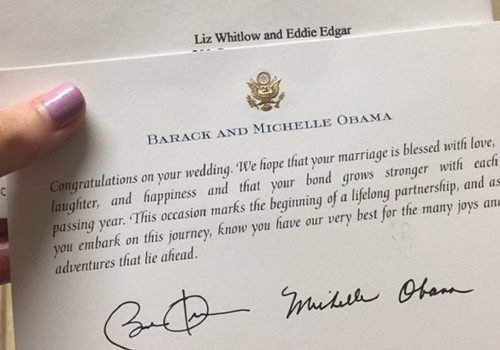 Liz Whitlow and Eddie Edgar
BARACK AND MICHELLE OBAMA
Congratulations on your wedding. We hope that your marriage is blessed with love,
laughter, and happiness and that your bond grows stronger with each
passing year. This occasion marks the beginning of a lifelong partnership, and as
you embark on this journey, know you have our very best for the many joys and
adventures that lie ahead.
Michelle Obama